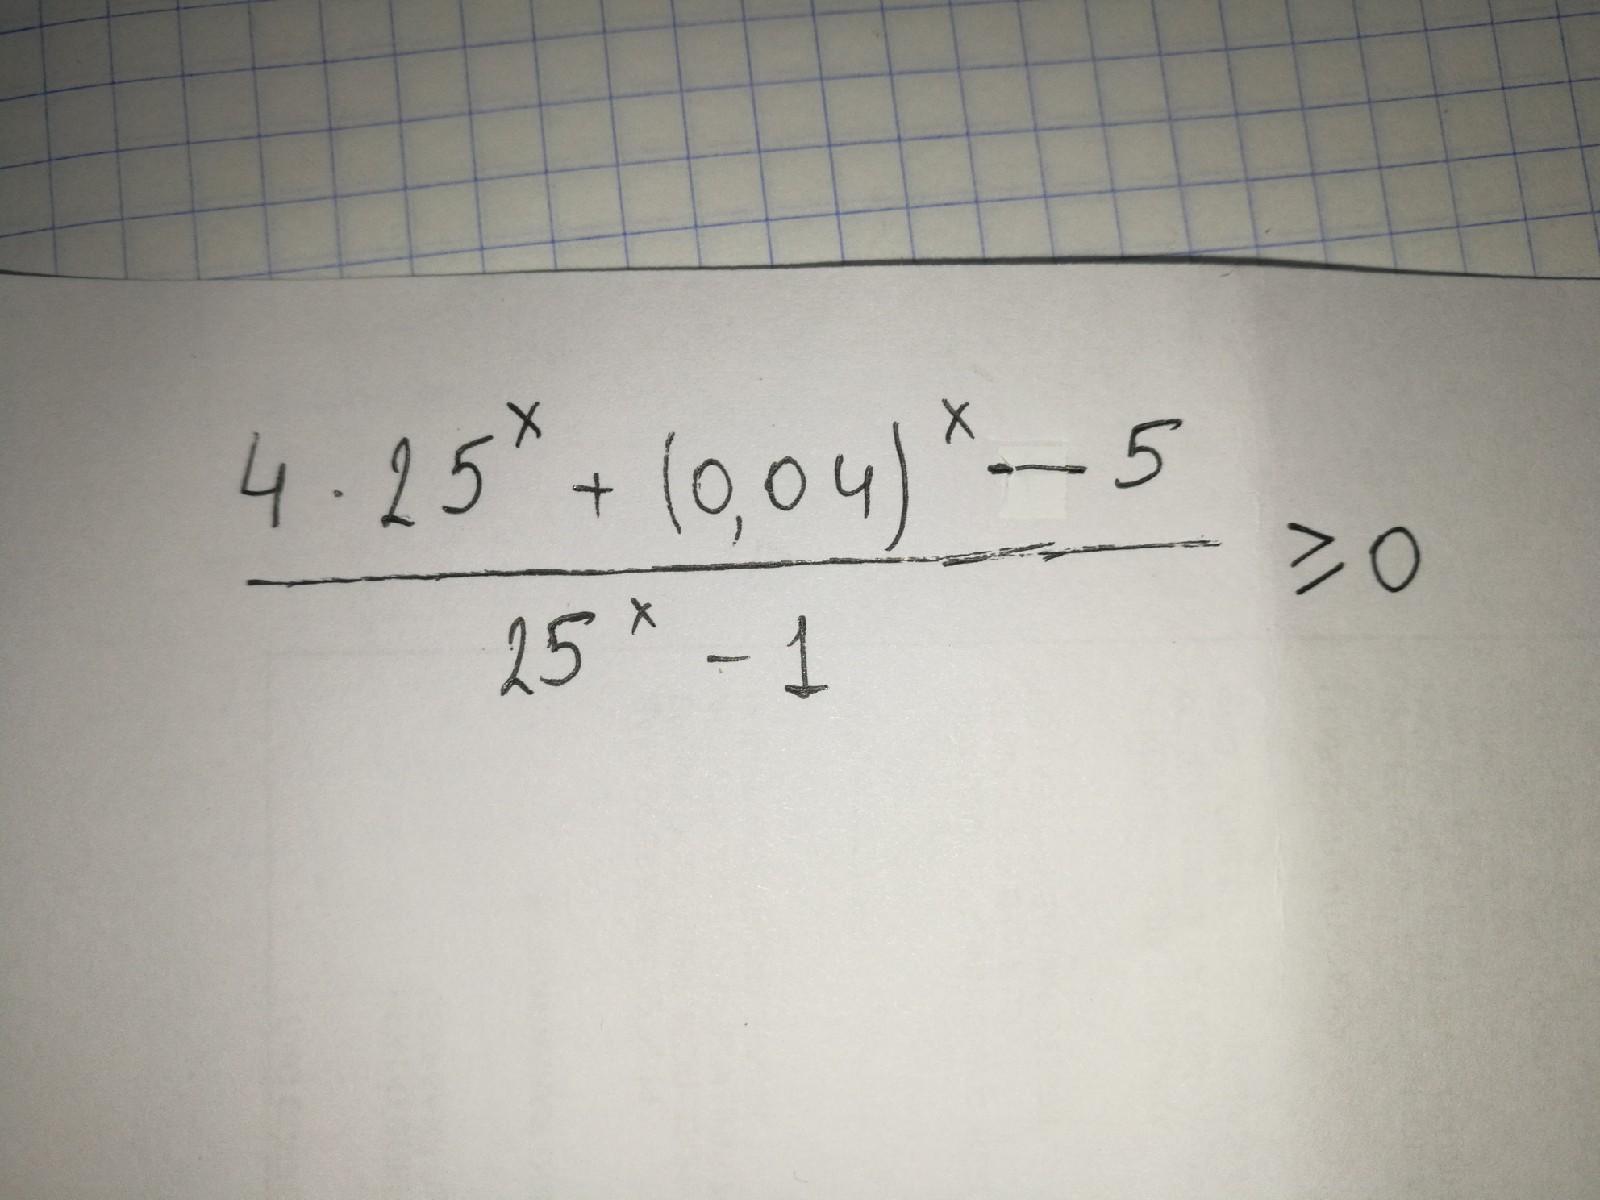 4 · 25^x + (0,04)^x — 5
25^x - 1
≥ 0